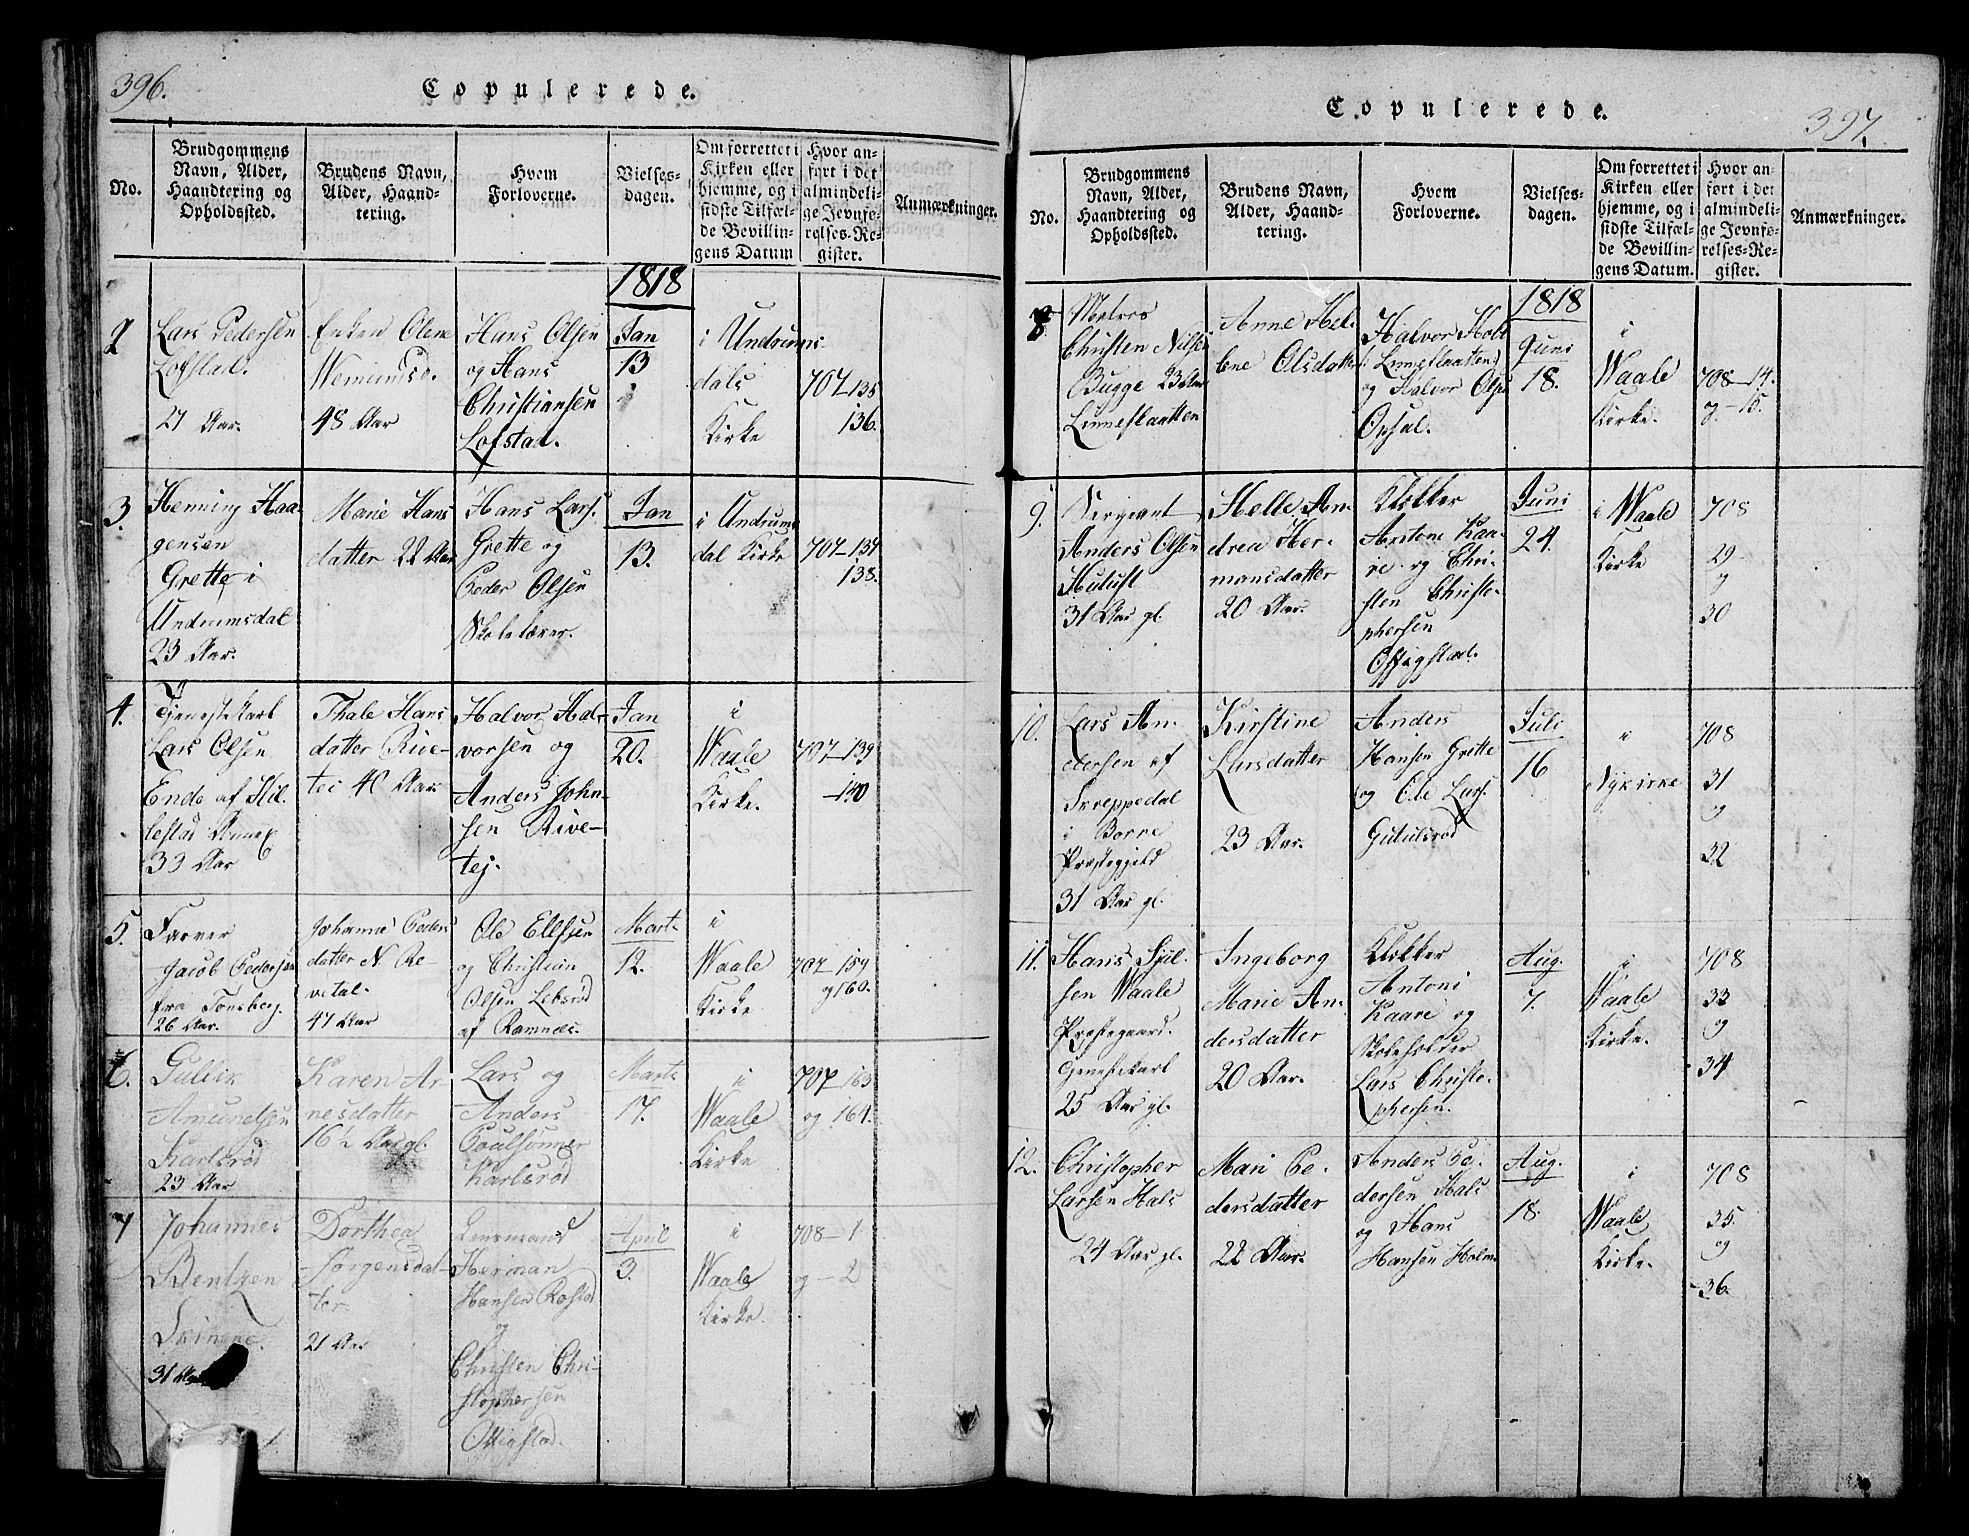 396.
Copulerede.
No.
Brudgommens
Navn, Alder,
Haandtering og
Opholdssted.
Brudens Navn,
Alder, Haand-
tering.
Hvem
Forloverne.
Vielses-
dagen.
Om forrettet i
Kirken eller
hjemme, og i
sidste Tilfæl-
de Bevillin-
gens Datum
Hvor an-
ført i det
almindeli-
ge Jevnfø-
relses-Re-
gister.
Anmærkninger.
1818
2
Lars Pedersen
Lofstad.
27 Aar.
Enken Olene
Wemundsd.
48 Aar
Hans Olsen
og Hans
Christiansen
Lofstad.
Jan
13
i Undrums
dals
Kirke
707-135
136.
3.
Henning Haa-
gensen
Grette i
Undrumsdal
23 Aar.
Marie Hans
datter 22 Aar
Hans Lars.
Grette og
Peder Olsen
Skolelærer.
Jan
13.
i Undrums
dal Kirke
707-137
138.
4.
Tjenestekarl
Lars Olsen
Ende af Hil-
lestad Annex
33 Aar
Thale Hans
datter Rive-
tei 40 Aar.
Halvor Hal-
vorsen og
Anders John-
sen Rive-
tej.
Jan
20.
i
Waale
Kirke.
707-139
-140
5.
Farver
Jacob Pedersen
fra Tonsberg.
26 Aar.
Johanne Peders
datter N. Re-
vetal.
47 Aar
Ole Ellefsen
og Christian
Olsen Lebsrød
af Ramnæs.
Mart.
12.
i
Waale
Kirke
707-159
og 160.
6.
Gullik
Amundsen
Karlsrød
23 Aar
Karen Ar-
nesdatter
16½ Aar gl.
Lars og
Anders
Poulsønner
Karlsrød
Marti
17.
i
Waale
Kirke
707-163
og 164.
7
Johannes
Bentzen
31 Aar
Dorthea
Jørgensdat-
ter.
21 Aar
Lensmand
Herman
Hansen Rostad
og
Christen Chri-
stophersen
Offigstad.
April
3.
i
Waale
Kirke.
708-1
og-2
397.
Copulerede.
No.
Brudgommens
Navn, Alder,
Haandtering og
Opholdssted.
Brudens Navn,
Alder, Haand-
tering.
Hvem
Forloverne.
Vielses-
dagen.
Om forrettet i
Kirken eller
hjemme, og i
sidste Tilfæl-
de Bevillin-
gens Datum.
Hvor an-
ført i det
almindeli-
ge Jevnfø-
relses-Re-
gister.
Anmærkninger.
1818
8.
Matros
Christen Nilsen
Bugge 23 Aar
Linneslaatten
Anne He-
lene Olsdatter
Halvor Holt
Linneslaatten
og Halvor Olsen
Opsal.
Juni
18.
i
Waale
Kirke.
708-14.
og-15.
9.
Sergeant
Anders Olsen
31 Aar gl.
Helle An-
drea Her-
mansdatter
20 Aar.
Klokker
Antone Kaa-
re og Chri-
sten Christo-
phersen
Offigstad.
Juni
24.
i Waale
Kirke
708
29
og
30
10.
Lars An-
dersen af
Skreppedal
i Borre
Præstegjeld
31 Aar gl.
Kirstine
Larsdatter
23 Aar.
Anders
Hansen Grette
og Ole Lars.
Gutulsrød
Juli
16
i
Nykirke
708
31
og
32
11.
Hans Sjul-
sen Waale
Præstegaard.
Tjenestekarl
25 Aar gl.
Ingeborg
Marie An-
dersdatter
20 Aar.
Klokker
Antoni
Kaare og
Skoleholder
Lars Christo-
phersen.
Aug.
7.
i
Waale
Kirke.
708
33
og
34
12.
Christopher
Larsen Hals
24 Aar gl.
Mari Pe-
dersdatter
22 Aar.
Anders Pe-
dersen Hals
og Hans
Hansen Holm.
Aug.
18.
i
Waale
Kirke.
708
35.
og
36.